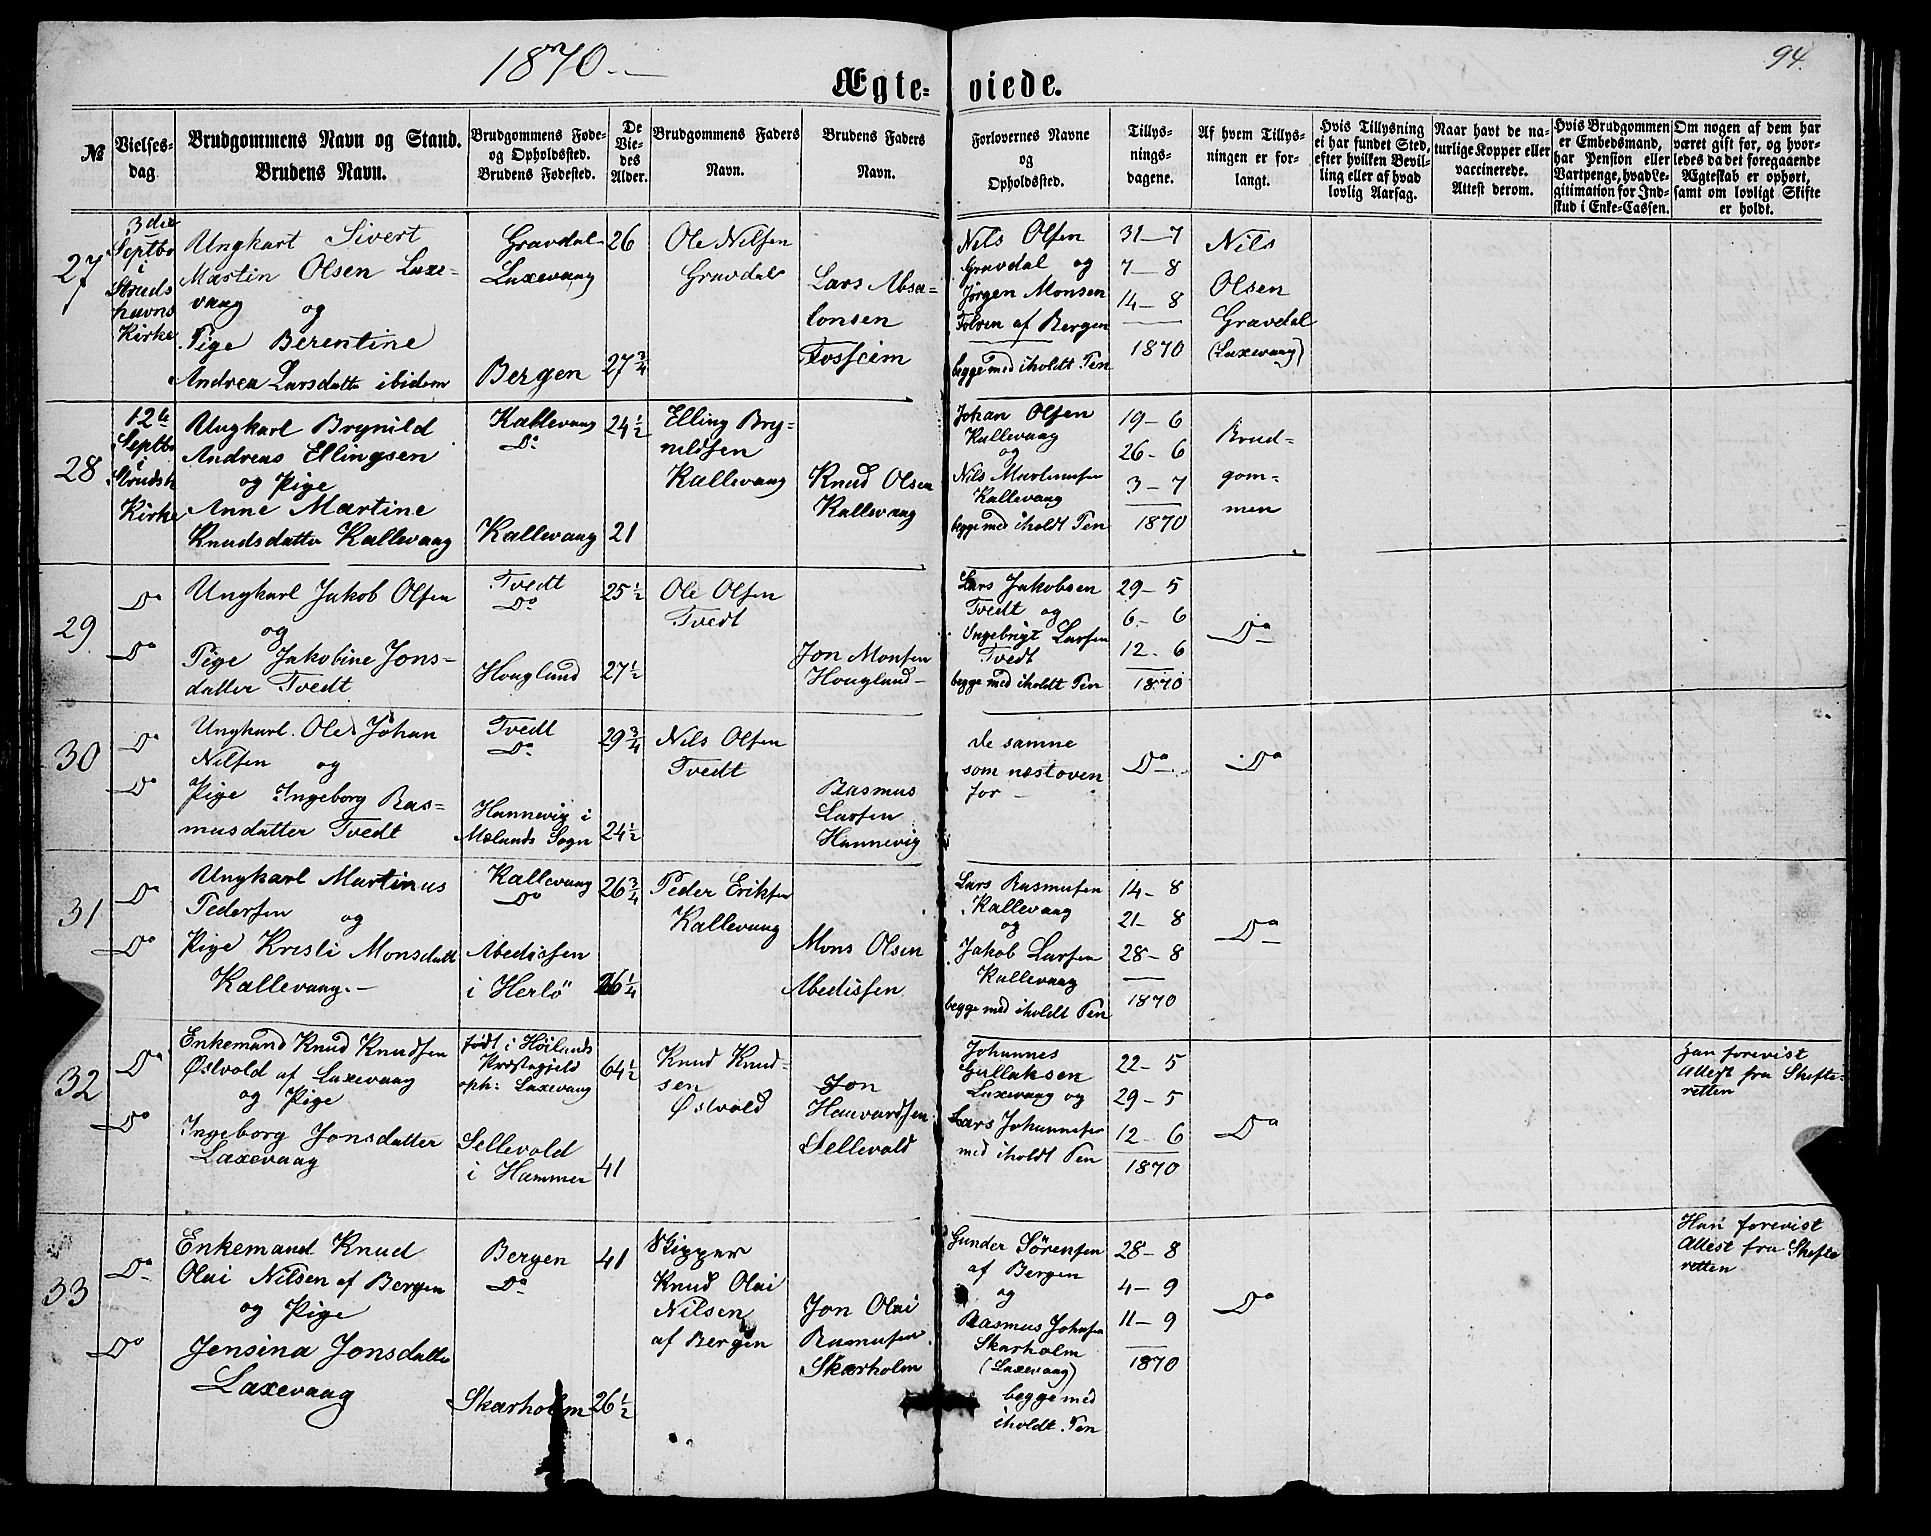 1870.—
94.
Ægte-
viede.
№
Vielses-
dag
Brudgommens Navn og Stand.
Brudens Navn.
Brudgommens Føde-
og Opholdssted.
Brudens Fødested.
De
Vie-
des
Alder.
Brudgommens Faders
Navn.
Brudens Faders
Navn.
Forlovernes Navne
og
Opholdssted.
Tillys-
nings-
dagene.
Af hvem Tillys-
ningen er for-
langt.
Hvis Tillysning
ei har fundet Sted,
efter hvilken Bevil-
ling eller af hvad
lovlig Aarsag.
Naar havt de na-
turlige Kopper eller
vaccinerede.
Attest derom.
Hvis Brudgommen
er Embedsmand,
har Pension eller
Vartpenge, hvad Le-
gitimation for Ind-
skud i Enke-Cassen.
Om nogen af dem har
været gift før, og hvor-
ledes da det foregaaende
Ægteskab er ophørt,
samt om lovligt Skifte
er holdt.
27
3die
Septbr
i
Struds
havns
Kirke
Ungkarl Sivert
Martin Olsen Laxe-
vaag og
Pige Berentine
Andrea Larsdatter ibidem
Gravdal
Laxevaag
Bergen
26
27 3/4
Ole Nilsen
Gravdal
Lars Absa-
lonsen
Nils Olsen
Gravdal og
Jørgen Monsen
af Bergen
begge med iholdt Pen
31–7
7–8
14–8
1870
Nils
Olsen
Gravdal
(Laxevaag)
28
12te
Septbr
i
Strudsh
Kirke
Ungkarl Brynild
Andreas Ellingsen
og Pige
Anne Martine
Knudsdatter Kallevaag
Kallevaag
Do
Kallevaag
24 1/2
21
Elling Bry-
nildsen
Kallevaag
Knud Olsen
Kallevaag
Johan Olsen
Kallevaag
og
Nils Martinusen
Kallevaag
begge med iholdt Pen
19–6
26–6
3–7
1870
Brud-
gom-
men
29
Do
Do
Ungkarl Jakob Olsen
og
Pige Jakobine Jons-
datter Tvedt
Tvedt
Do
Hougland
25 1/2
27 1/2
Ole Olsen
Tvedt
Jon Monsen
Hougland
Lars Jakobsen
Tvedt og
Ingebrigt Larsen
Tvedt
begge med iholdt Pen
29–5
6–6
12–6
1870
Do
30
Do
Do
Ungkarl Ole Johan
Nilsen og
Pige Ingeborg Ras-
musdatter Tvedt
Tvedt
Do
Hannevig i
Mælands Sogn
29 3/4
24 1/2
Nils Olsen
Tvedt
Rasmus
Larsen
Hannevig
de samme
som næstoven
for –
Do
Do
31
Do
Do
Ungkarl Martinus
Pedersen og
Pige Kristi Monsdatt
Kallevaag.–
Kallevaag
Do
Abedissen
i Herlö
26 3/4
26 1/4
Peder Eriksen
Kallevaag
Mons Olsen
Abedissen
Lars Rasmusen
Kallevaag
og
Jakob Larsen
Kallevaag
begge med iholdt Pen
14–8
21–8
28–8
1870
Do
32
Do
Do
Enkemand Knud Knudsen
Østvold af Laxevaag
og Pige
Ingeborg Jonsdatter
Laxevaag
født i Høilands
Præstegjeld
oph: Laxevaag
Sellevold
i Hammer
64 1/2
41
Knud Knud-
sen
Østvold
Jon
Haavardsen
Sellevold
Johannes
Gullaksen
Laxevaag og
Lars Johannesen
med iholdt Pen
22–5
29–5
12–6
1870
Do
han forevist
Attest fra Skifte-
retten
33
Do
Do
Enkemand Knud
Olai Nilsen af Bergen
og Pige
Jensina Jonsdatter
Laxevaag
Bergen
Do
Skarholm
41
26 1/2
Skipper
Knud Olai
Nilsen
af Bergen
Jon Olai
Rasmusen
Skarholm
Gunder Sörensen
af Bergen
og
Rasmus Johnsen
Skarholm
(Laxevaag)
begge med
iholdt Pen
28–8
4–9
11–9
1870
Do
Han forevist
Attest fra Skifte
retten